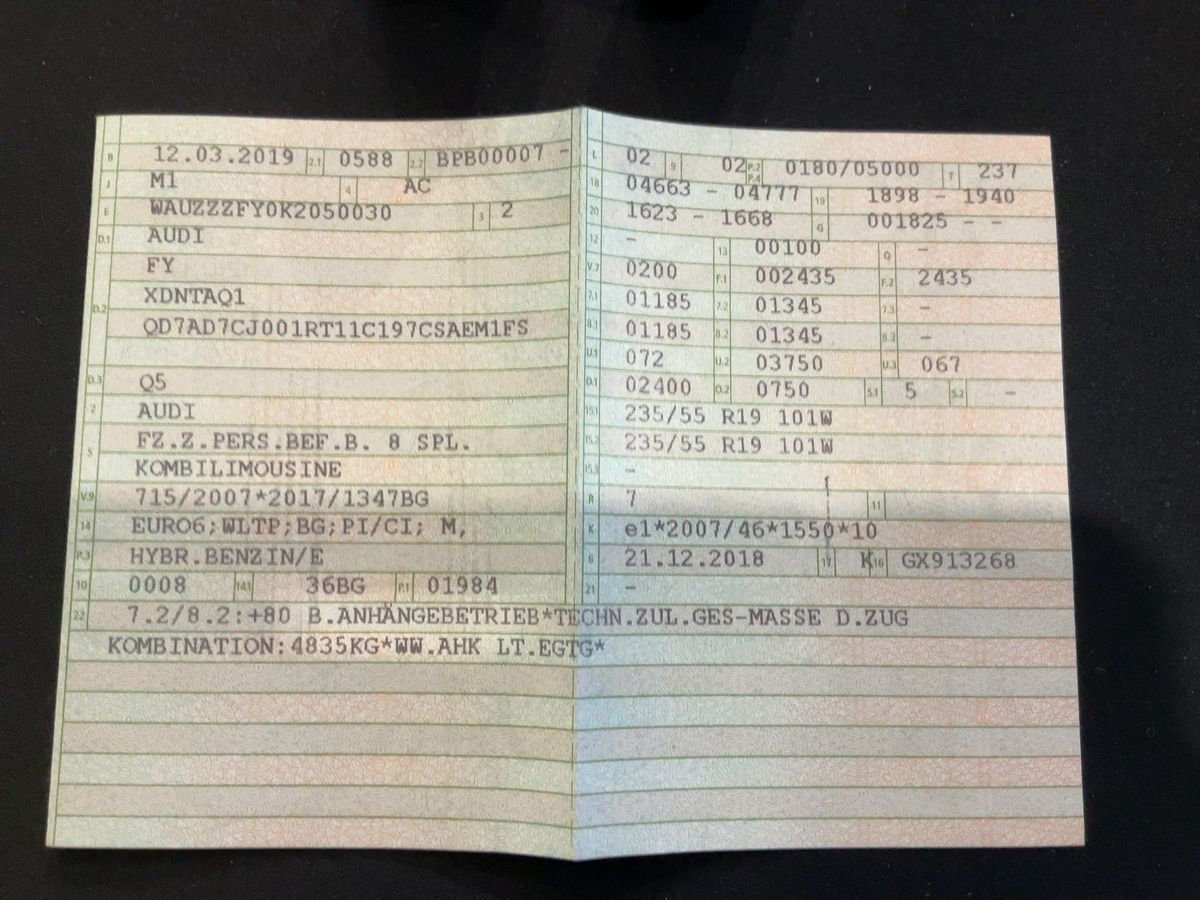 B 12.03.2019 2.1 0588 2.2 BPB00007 -
J M1 4 AC
E WAUZZZFY0K2050030 3 2
D.1 AUDI
FY
D.2 XDNTAQ1
QD7AD7CJ001RT11C197CSAEM1FS
D.3 Q5
2 AUDI
5 FZ.Z.PERS.BEF.B. 8 SPL.
KOMBILIMOUSINE
V.9 715/2007*2017/1347BG
14 EURO6;WLTP;BG;PI/CI; M,
P.3 HYBR.BENZIN/E
10 0008 14.1 36BG P.1 01984
L 02 9 02 P.2 P.4 0180/05000 T 237
18 04663 - 04777 19 1898 - 1940
20 1623 - 1668 G 001825 - -
12 - 13 00100 Q -
V.7 0200 F.1 002435 F.2 2435
7.1 01185 7.2 01345 7.3 -
8.1 01185 8.2 01345 8.3 -
U.1 072 U.2 03750 U.3 067
O.1 02400 O.2 0750 S.1 5 S.2 -
15.1 235/55 R19 101W
15.2 235/55 R19 101W
15.3 -
R 7 11
K e1*2007/46*1550*10
6 21.12.2018 17 K 16 GX913268
21 -
22 7.2/8.2:+80 B.ANHÄNGEBETRIEB*TECHN.ZUL.GES-MASSE D.ZUG
KOMBINATION:4835KG*WW.AHK LT.EGTG*